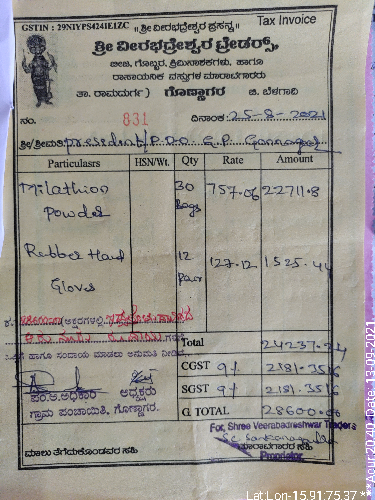 GSTIN : 29NIYPS4241E1ZC ॥ಶ್ರೀ ವೀರಭದ್ರೇಶ್ವರ ಪ್ರಸನ್ನ॥ Tax Invoice
ಶ್ರೀ ವೀರಭದ್ರೇಶ್ವರ ಟ್ರೇಡರ್ಸ್,
ಬೀಜ, ಗೊಬ್ಬರ, ಕ್ರಿಮಿನಾಶಕಗಳು, ಹಾಗೂ
ರಾಸಾಯನಿಕ ವಸ್ತುಗಳ ಮಾರಾಟಗಾರರು
ತಾ. ರಾಮದುರ್ಗ) ಗೊಣ್ಣಾಗರ ಜಿ. ಬೆಳಗಾವಿ
ನಂ. 831 ದಿನಾಂಕ: 25-8-2021
ಶ್ರೀ/ಶ್ರೀಮತಿ: president/P.D.O G.P
Particulasrs HSN/Wt. Qty Rate Amount
Milathion Powder 30 Bags 757.06 22711.8
Rebber Hand Gloves 12 Pair 127.12 1525.44
ರೂ. (ಅಕ್ಷರಗಳಲ್ಲಿ)
ಹಾಗೂ ಸಂದಾಯ ಮಾಡಲು ಅನುಮತಿ ನೀಡಿದೆ.
Total 24237.24
CGST 9% 2181.3516
SGST 9% 2181.3516
G. TOTAL 28600.00
ಪಂ.ಅ.ಅಧಿಕಾರಿ ಅಧ್ಯಕ್ಷರು
ಗ್ರಾಮ ಪಂಚಾಯಿತಿ, ಗೊಣ್ಣಾಗರ.
For, Shree Veerabadreshwar Traders
ಮಾಲು ತೆಗೆದುಕೊಂಡವರ ಸಹಿ ಮಾರಾಟಗಾರರ ಸಹಿ
Propriator
Lat Lon-15917537***Aour2040 Date 13-09-2021